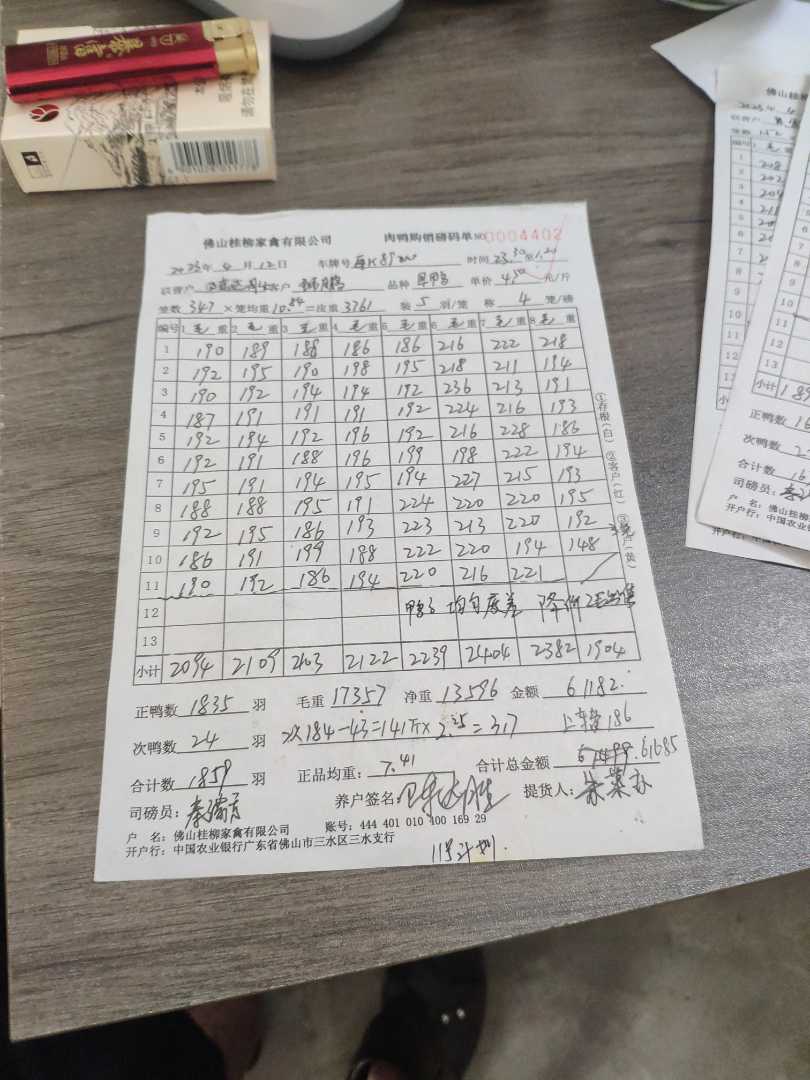 佛山桂柳家禽有限公司 肉鸭购销磅码单 №0004402
2023年4月12日 车牌号 时间 23.30至1.20
客户 品种 旱鸭 单价 4.50 元/斤
笼数 347 ×笼均重 10.84 =皮重 3761 装 5 羽/笼 称 4 笼/磅
编号 1 毛 重 2 毛 重 3 毛 重 4 毛 重 5 毛 重 6 毛 重 7 毛 重 8 毛 重
1 190 189 188 186 186 216 222 218
2 192 195 190 198 195 218 211 194
3 190 192 194 194 192 236 213 191
4 187 191 191 191 192 224 216 193
5 192 194 192 196 192 216 228 186
6 192 191 188 196 199 198 222 194
7 195 191 194 195 194 227 215 193
8 188 188 195 191 224 220 220 195
9 192 195 186 193 223 213 220 192
10 186 191 199 188 222 220 194 148
11 190 192 186 194 220 216 221
12 鸭子 均匀度差 降价
13
小计 2094 2109 2103 2122 2239 2404 2382 1904
①存根(白) ②客户(红)
正鸭数 1835 羽 毛重 17357 净重 13596 金额 61182.
次鸭数 24 羽 次184-43=141斤×2.25=317 上车费186
合计数 1859 羽 正品均重: 7.41 合计总金额 61685
司磅员: 养户签名: 提货人:
户 名: 佛山桂柳家禽有限公司 账号: 444 401 010 400 169 29
开户行: 中国农业银行广东省佛山市三水区三水支行